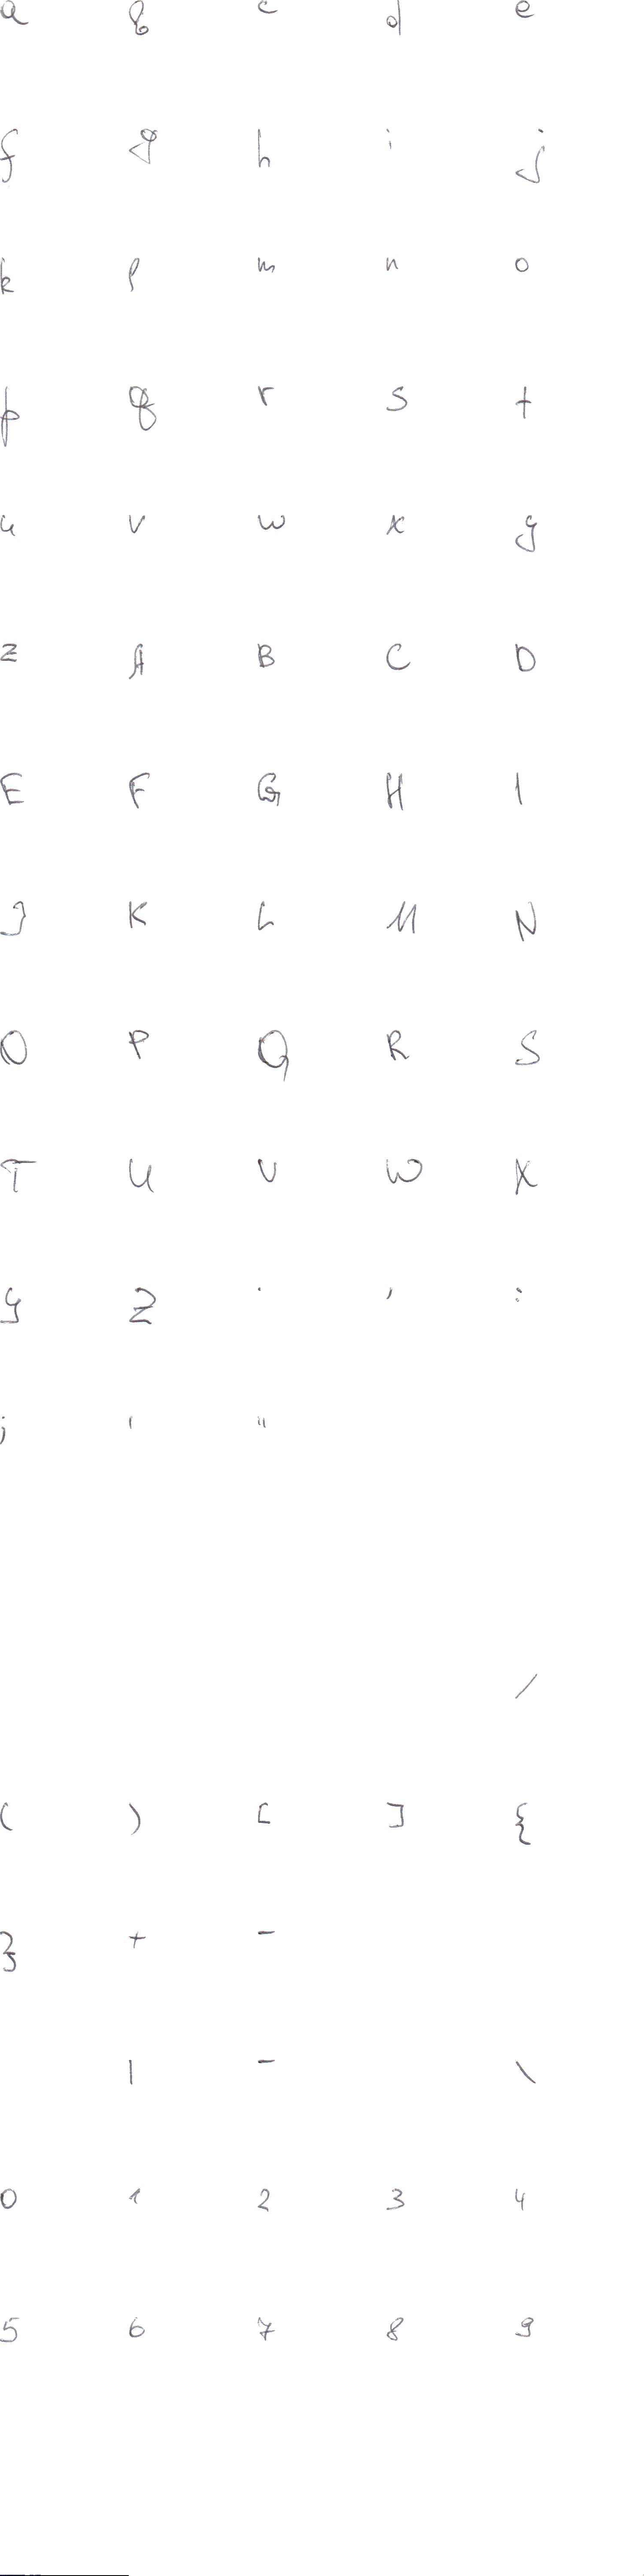 a b c d e
f g h i j
k l m n o
p q r s t
u v w x y
z A B C D
E F G H I
J K L M N
O P Q R S
T U V W X
Y Z . , :
; ' "
/
( ) [ ] {
} + -
| - \
0 1 2 3 4
5 6 7 8 9